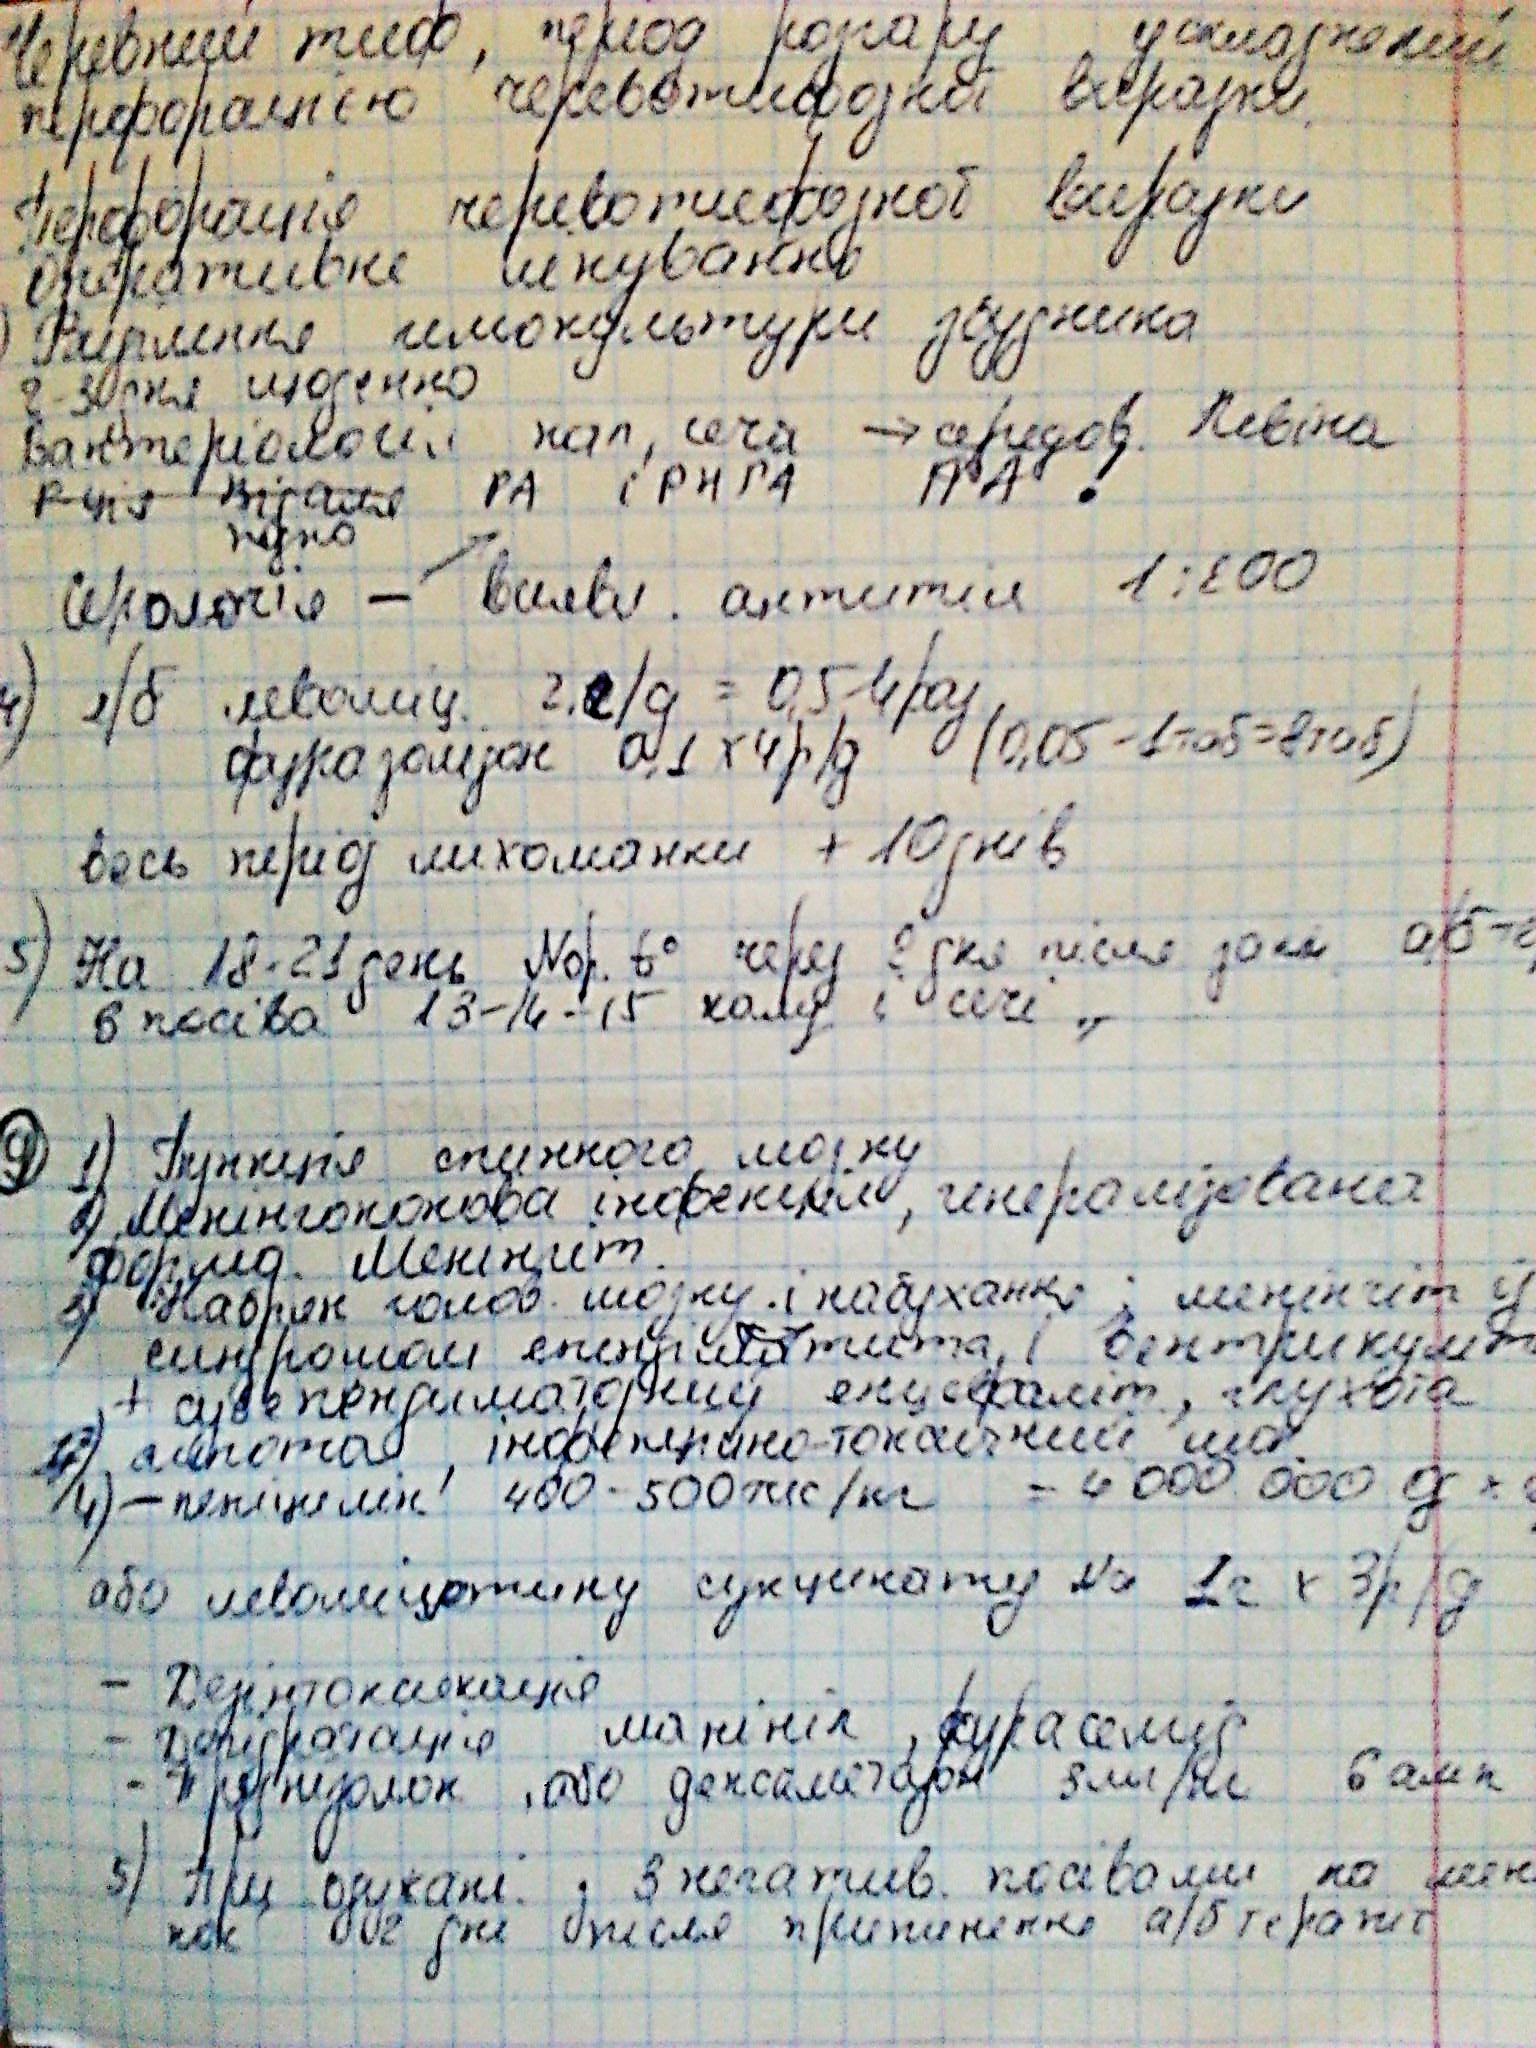 Черевний тиф, період розпалу, ускладнений
перфорацією черевотифозної виразки.
Перфорація черевотифозної виразки
Оперативне лікування
) Виділення гемокультури збудника
2-3 дня щоденно
Бактеріологія кал, сеча → середов. Левіна
Р-ція Відаля РА і РНГА !
пізно
Серологія — виявл. антитіл 1:200
4) а/б левоміц. /д = 0,5 4 раз
фуразолідон 0,1 х 4р/д (0,05 - 1таб = 8таб)
весь період лихоманки + 10 днів
5) На 18-21 день Nор. t° через 2 дня після зак а/б-т
в посіва 13-14-15 калу і сечі „
9 1) Пункція спинного мозку
2) Менінгококова інфекція, генералізована
форма. Менінгіт.
3) Набряк голов. мозку і набухання; менінгіт із
синдромом епендиматита, і вентрикуліт
+ субепендиматорний енцефаліт, глухота
сліпота, інфекційно-токсичний шок
4) — пеніцилін 400-500 тис/кг = 4 000 000 д х
або левоміцетину сукцинату Na 1г х 3р/д
- Дезінтоксикація
- Дегідратація манініл, фурасемід
- Преднізолон, або дексаметазон 3мг/кг 6 амп
5) При одужані. 3 негатив. посівами на мен
кок 2 дні після припинення а/б терапії